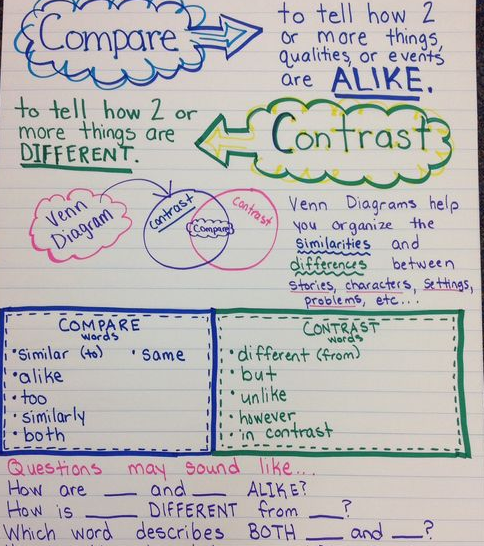 Compare
to tell how 2
or more things,
qualities, or events
are ALIKE.
to tell how 2 or
more things are
DIFFERENT.
Contrast
Venn
Diagram
Contrast
Compare
Contrast
Venn Diagrams help
you organize the
similarities and
differences between
stories, characters, settings,
problems, etc...
COMPARE
words
• similar (to) • same
• alike
• too
• similarly
• both
CONTRAST
words
• different (from)
• but
• unlike
• however
• in contrast
Questions may sound like...
How are ___ and ___ ALIKE?
How is ___ DIFFERENT from ___?
Which word describes BOTH ___ and ___?